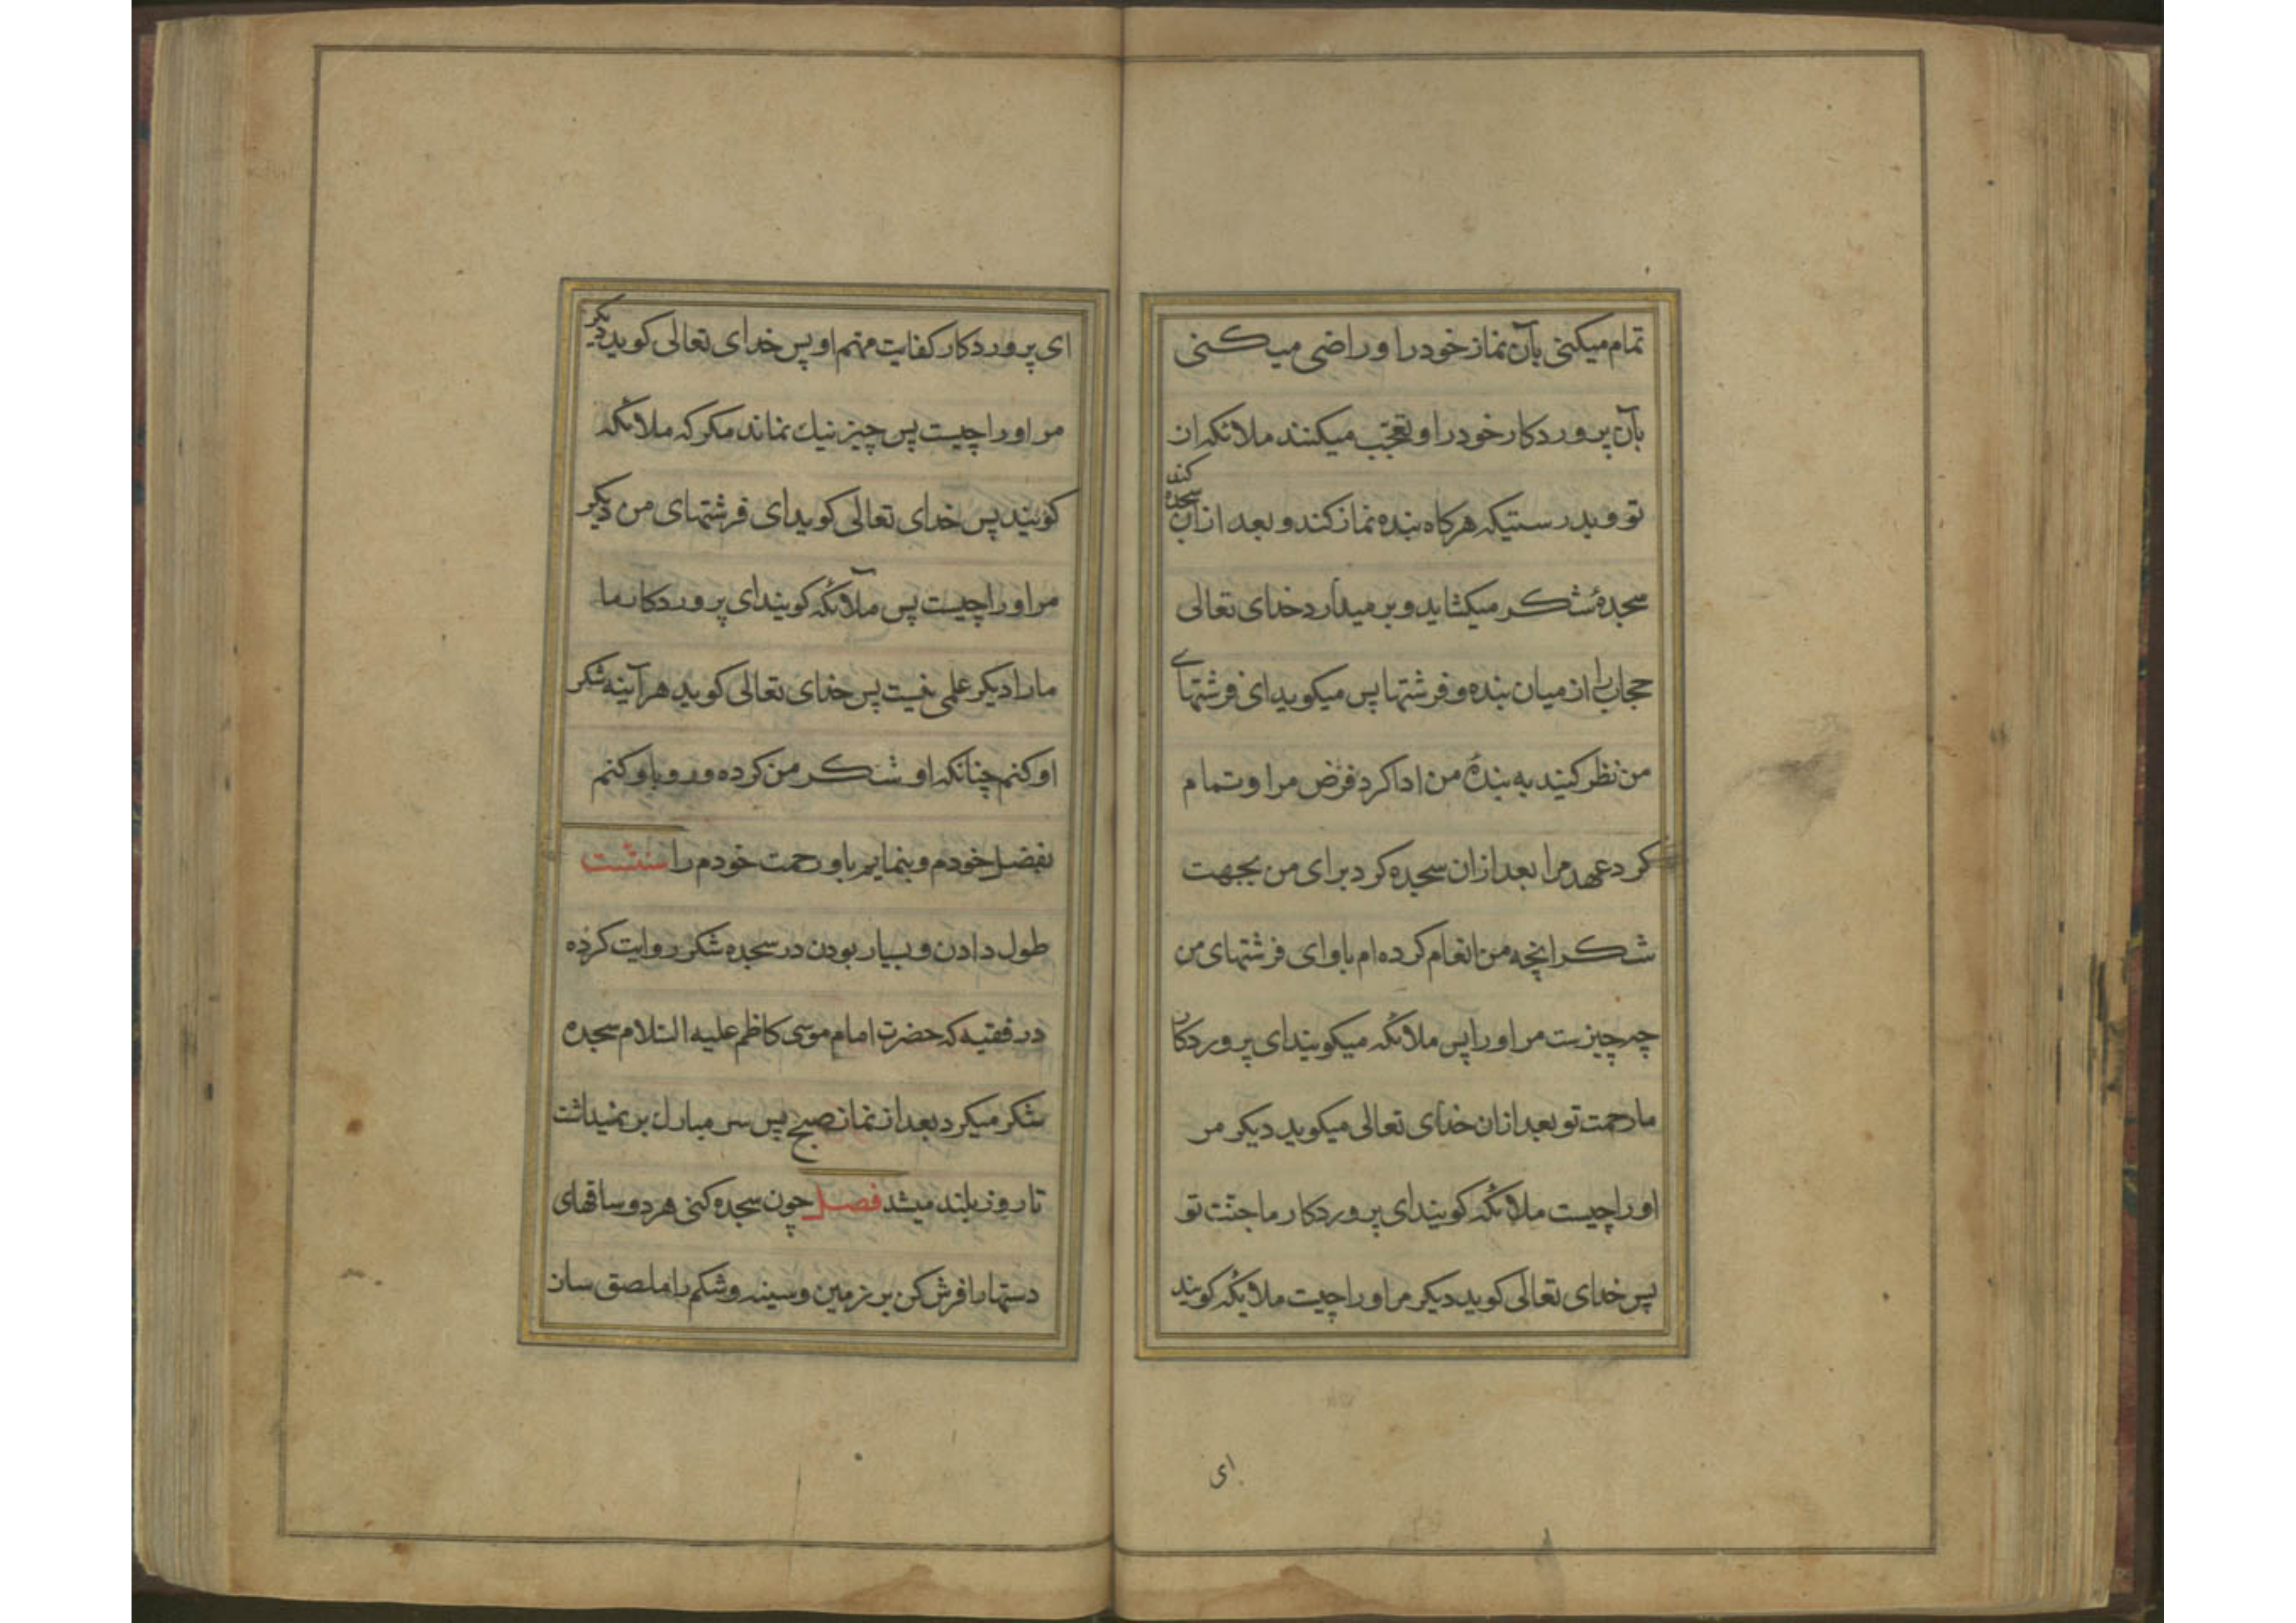 تمام میکنی بآن نماز خود را و راضی میکنی
بآن پروردکار خود را و تعجّب میکنند ملائکه از
تو و بدرستیکه هرکاه بنده نماز کند و بعد ازان سجده کند
سجدهٔ شکر میکشاید و بر میدارد خدای تعالی
حجاب را از میان بنده و فرشتها پس میکوید ای فرشتهای
من نظر کنید به بندهٔ من ادا کرد فرض مرا و تمام
کرد عهد مرا بعد ازان سجده کرد برای من بجهت
شکر انچه من انعام کرده ام باو ای فرشتهای من
چه چیزست مر او را پس ملائکه میکویند ای پروردکار
ما رحمت تو بعد ازان خدای تعالی میکوید دیکر مر
او را چیست ملائکه کویند ای پروردکار ما جنّت تو
پس خدای تعالی کوید دیکر مر او را چیست ملائکه کویند
ای
ای پروردکار کفایت مهم او پس خدای تعالی کوید دیکر
مر او را چیست پس چیز نیك نماند مکر که ملائکه
کویند پس خدای تعالی کوید ای فرشتهای من دیکر
مر او را چیست پس ملآئکه کویند ای پروردکار ما
ما را دیکر علمی نیست پس خدای تعالی کوید هرآینه شکر
او کنم چنانکه او شکر من کرده و رو باو کنم
بفضل خودم و بنمایم باو رحمت خودم را سنتست
طول دادن و بسیار بودن در سجده شکر روایت کرده
در فقیه که حضرت امام موسی کاظم علیه السّلام سجده
شکر میکرد بعد از نماز صبح پس سر مبارك بر نمیداشت
تا روز بلند میشد فصل چون سجده کنی هر دو ساقهای
دستها را فرش کن بر زمین و سینه و شکم را ملصق سان